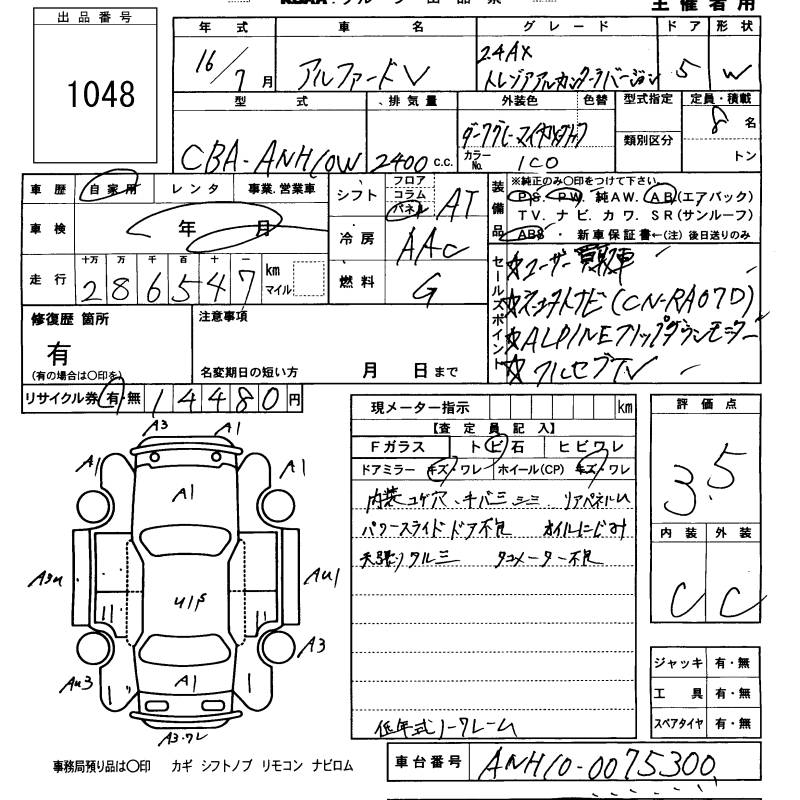 主催者用
出品番号
1048
年式 車名 グレード ドア 形状
16/7月 アルファードV 2.4AX トレゾアアルカンターラバージョン 5 W
型式 排気量 外装色 色替 型式指定 定員・積載
CBA-ANH10W 2400c.c. カラーNo. 1C0 類別区分 8名
トン
車歴 自家用 レンタ 事業.営業車
車検 年 月
走行 十万 万 千 百 十 一
286547 km マイル
シフト フロア コラム パネル AT
冷房 AAC
燃料 G
装備品 ※純正のみ〇印をつけて下さい。
PS. PW. 純AW. AB(エアバック)
TV. ナビ. カワ. SR(サンルーフ)
ABS . 新車保証書←(注)後日送りのみ
セールスポイント
☆ユーザー買取車
ナビ(CN-RA07D)
☆ALPINEフリップダウンモニター
☆フルセグTV
修復歴 箇所
有
(有の場合は〇印を)
注意事項
名変期日の短い方 月 日まで
リサイクル券 有・無 14480円
現メーター指示 km
【査定員記入】
Fガラス トビ石 ヒビワレ
ドアミラー キズ・ワレ ホイール(CP) キズ・ワレ
内装コゲ穴、キバミ シミ リアパネルム
パワースライドドア不良 オイルにじみ
天張りタルミ タコメーター不良
低年式ノークレーム
評価点
3.5
内装 外装
C C
ジャッキ 有・無
工具 有・無
スペアタイヤ 有・無
A3 A1
A1 A1
A1
AU1
A3
AU3
A1
A3.ワレ
事務局預り品は〇印 カギ シフトノブ リモコン ナビロム
車台番号 ANH10-0075300